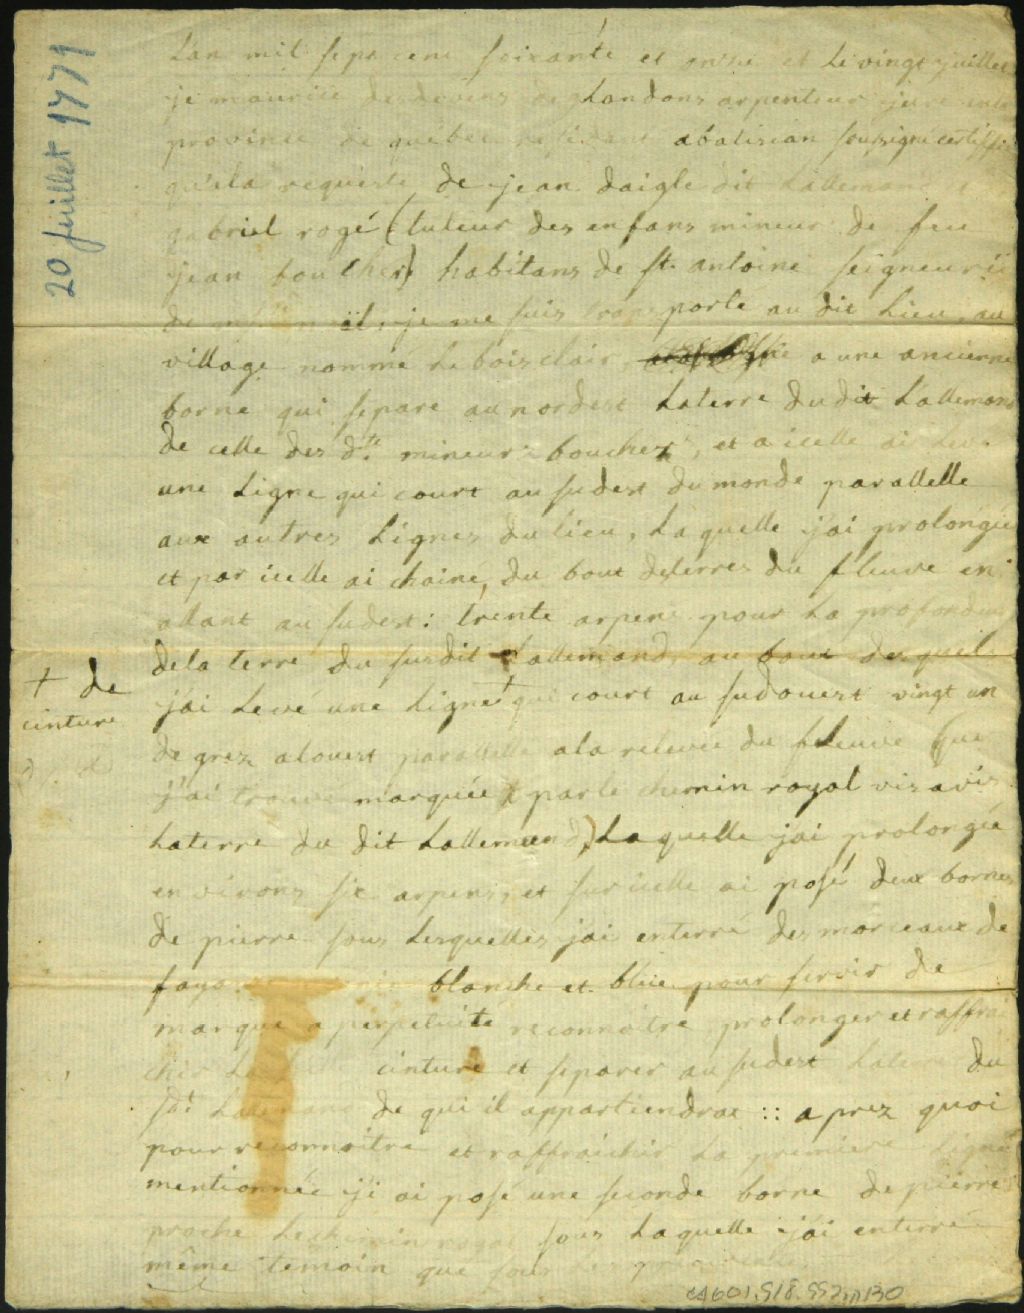 20 juillet 1771
L'an mil sept cent soixante et onze et le vingt juillet
je maurice desdevens de glandons arpenteur juré en la
province de quebec residant abatiscan soussigné certiffie
qu'ala requeste de jean daigle dit Lallemand et
gabriel rogé (tuteur des enfans mineur de feu
jean boucher) habitans de st. antoine seigneurie
de je me suis transporté au dit Lieu, au
village nommé Le bois clair a une ancienne
borne qui separe au nordest Laterre du dit Lallemand
de celle des dts. mineurs boucher, et a icelle ai Levé
une Ligne qui court au sudest du monde parallelle
aux autres Lignes du lieu, La quelle j'ai prolongée
et par icelle ai chainé, du bout desterres du fleuve en
allant au sudest: trente arpens pour La profondeur
dela terre du susdit Lallemand, au bout des quels
j'ai Levé une Ligne + qui court au sudouest vingt un
+ de
cinture
degrez alouest parallelle ala relevée du fleuve (que
j'ai trouvé marquée par le chemin royal vis avis
Laterre du dit Lallemand) La quelle jai prolongée
environs six arpens, et sur icelle ai posé deux bornes
de pierre sous Lesquelles jai enterré des morceaux de
blanche et bluë pour servir de
marque a perpetuité reconnoitre prolonger et raffrai
chir La cinture et separer au sudest Laterre du
sdt Lallemand de qui il appartiendrae :: aprez quoi
pour reconnoitre et raffraichir La premiere Ligne
mentionnée j'i ai posé une seconde borne de pierre
proche Lechemin royal sous Laquelle j'ai enterré
même temoin que sous Les precedentes
CA601,S18,SS2,D130